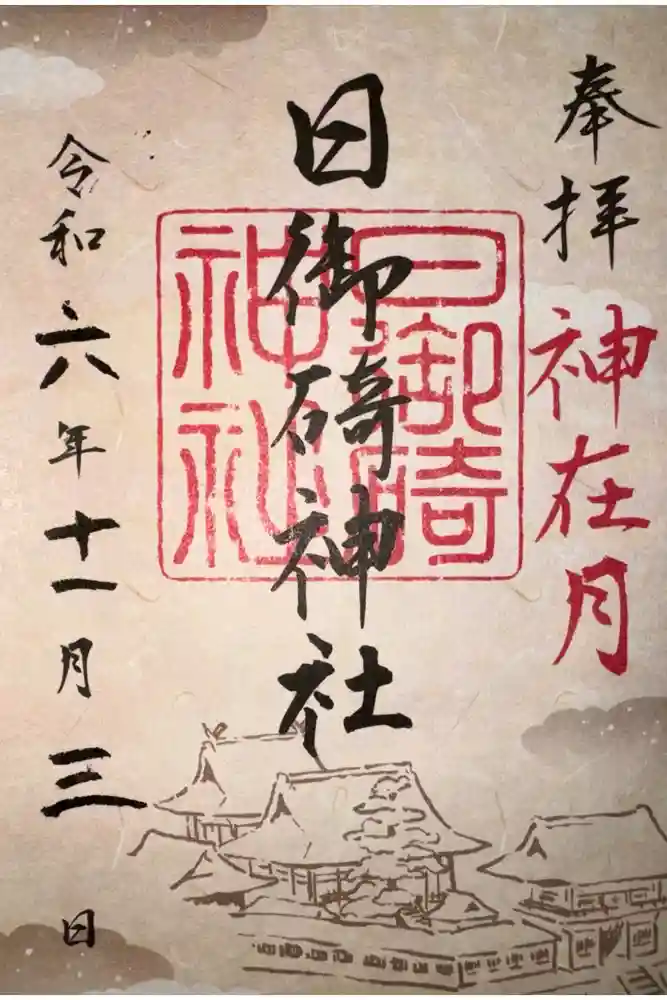 奉拝
神在月
日御碕神社
日御碕
神社
令和六年十一月三日